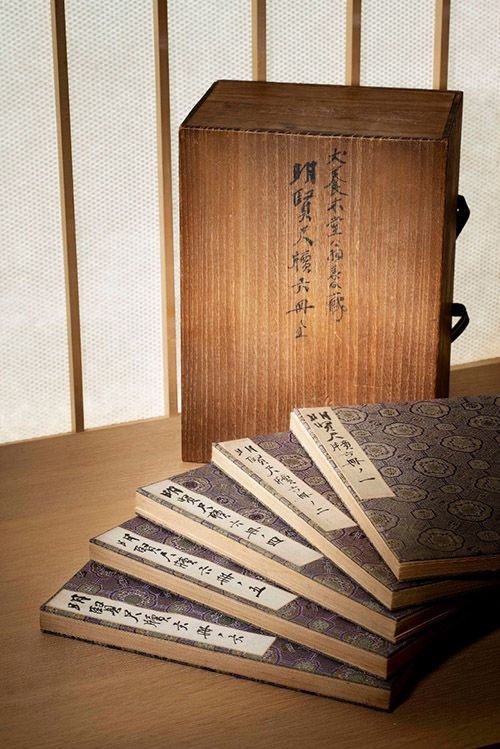 犬養木堂翁舊藏
明賢尺牘六冊全
明賢尺牘六冊ノ一
明賢尺牘六冊ノ二
明賢尺牘六冊ノ四
明賢尺牘六冊ノ五
明賢尺牘六冊ノ六